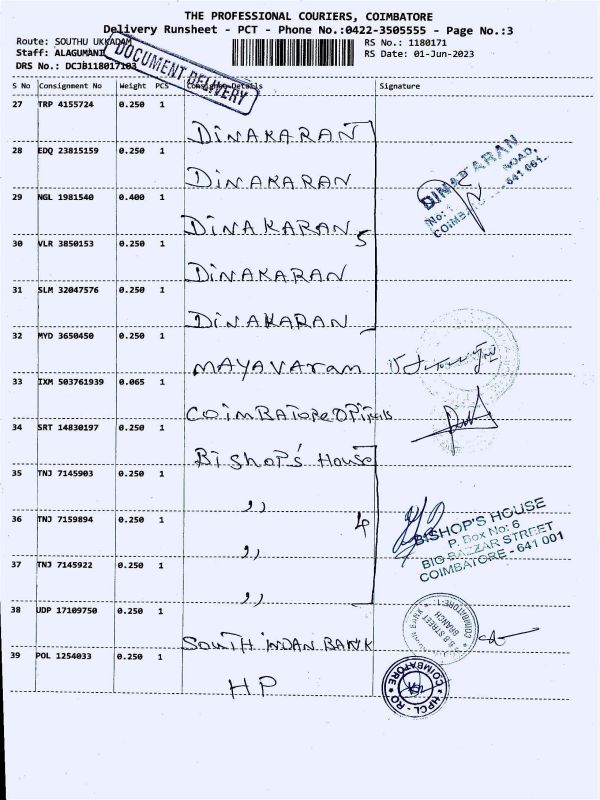 THE PROFESSIONAL COURIERS, COIMBATORE
Delivery Runsheet - PCT - Phone No.:0422-3505555 - Page No.:3
Route: SOUTHU UKKADAM
RS No.: 1180171
Staff: ALAGUMANI
RS Date: 01-Jun-2023
DRS No.: DCJB118017103
DOCUMENT DELIVERY
S No Consignment No Weight PCS Consignee Details Signature
27 TRP 4155724 0.250 1
DINAKARAN
28 EDQ 23815159 0.250 1
DINAKARAN
29 NGL 1981540 0.400 1
DINAKARAN 5
30 VLR 3850153 0.250 1
DINAKARAN
31 SLM 32047576 0.250 1
DINAKARAN
DINAKARAN
No: ROAD,
COIMB - 641 001.
32 MYD 3650450 0.250 1
MAYAVaram
33 IXM 503761939 0.065 1
COimBAToRe
34 SRT 14830197 0.250 1
BishoP's House
35 TNJ 7145903 0.250 1
,,
36 TNJ 7159894 0.250 1
4
,,
37 TNJ 7145922 0.250 1
,,
BISHOP'S HOUSE
P. Box No: 6
BIG BAZZAR STREET
COIMBATORE - 641 001
38 UDP 17109750 0.250 1
SOUTH INDAN BANK
B.B STREET
BRANCH
39 POL 1254033 0.250 1
HP
COIMBATORE
HPCL - RO